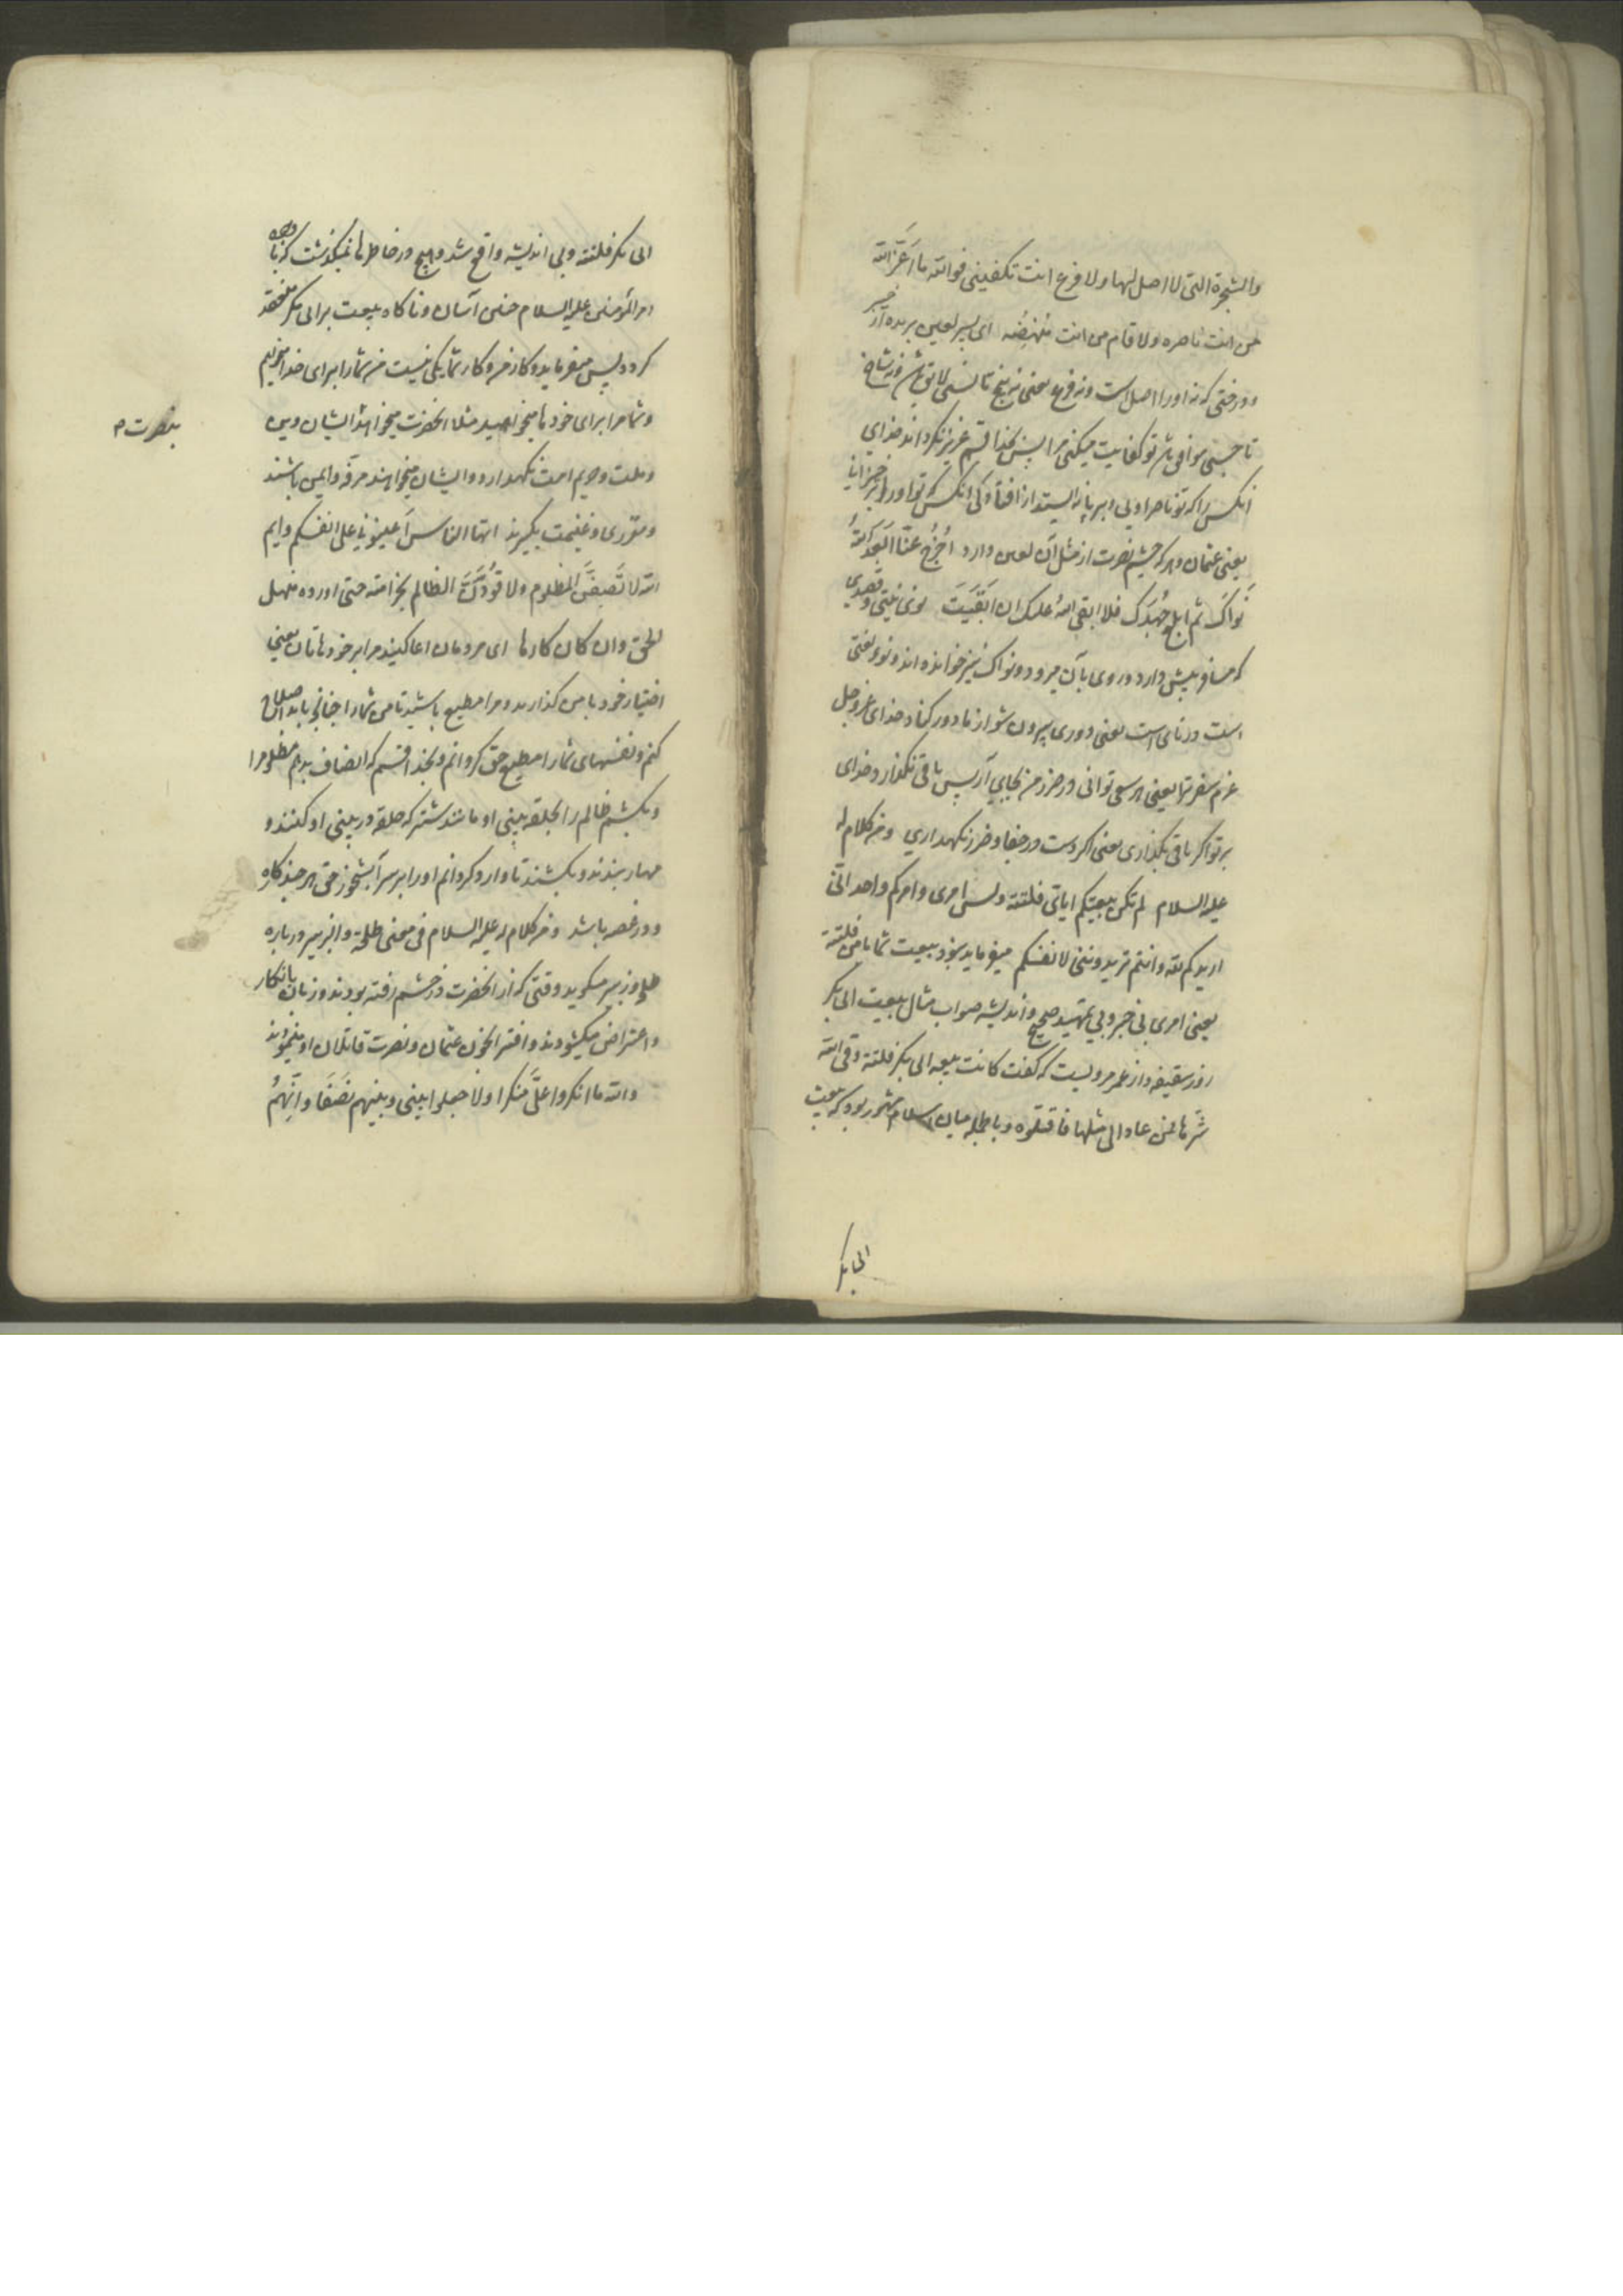 والشجرة التی لا اصل لها ولا فرع انت تکفینی فوالله ما اَعَزَّ الله
من انت ناصره ولا قام من انت مُنهِضُه ای پسر لعین بریده از خیر
و درختی که نه او را اصل است و نه فرع یعنی نه بیخ تا نسبی لایق باش و نه شاخ
تا حسبی موافق باش تو کفایت میکنی مرا پس بخدا قسم عزیز نگرداند خدای
انکس را که تو ناصر اویی و بر پا نه ایستد از افتادگی انکس که تو او را بر خیزانی
یعنی عثمان و هر که چشم نصرت از مثل آن لعین دارد اُخرُج عنّا اَبعَدَ اللهُ
نَواکَ ثم ابلغ جُهدَکَ فلا ابقی اللهُ علیک ان اَبقَیتَ نوی نیتی و قصدی
که مسافر پیش دارد و روی بآن میرود و نواک نیز خوانده اند و نوء لغتی
است در نای است یعنی دوری بیرون شو از ما دور کناد خدای عز وجل
عزم سفر ترا یعنی هر سعی توانی در ضرر من بجای آر پس باقی نگذارد خدای
بر تو اگر باقی بگذاری یعنی اگر دست در جفا و ضرر نگهداری ومن کلام له
علیه السلام لم تکن بیعتکم ایای فلتة ولیس امری وامرکم واحد انی
اریدکم لله وانتم تریدوننی لانفسکم میفرماید نبود بیعت شما با من فلتة
یعنی امری بی خبر و بی تمهید صحیح و اندیشه صواب مثال بیعت ابی بکر
روز سقیفه و از عمر مرویست که گفت کانت بیعه ابی بکر فلتة وقی الله
شرّها فمن عاد الی مثلها فاقتلوه و بالجمله میان اسلام مشهور بود که بیعت
ابی بکر
ابی بکر فلتة و بی اندیشه واقع شد و هیچ در خاطرها نمیگذشت که با وجود
امیر المؤمنین علیه السلام چنین آسان و ناگاه بیعت برابی بکر منعقد
گردد پس میفرماید و کار من و کار شما یکی نیست من شما را برای خدا میخواهم
و شما مرا برای خودها میخواهید مثلا انحضرت میخواهد ایشان دین
و ملت و حریم امت نگهدارد و ایشان میخواهند مرفّه و ایمن باشند
و مقرری و غنیمت بگیرند ایها الناس اَعینُونی علی انفسکم وایم
الله لاَنصِفَنَّ المظلوم ولاقُودَنَّ الظالم بخزامته حتی اورده منهل
الحق وان کان کارها ای مردمان اعا کنید مرا بر خودهاتان یعنی
اختیار خود با من گذارید و مرا مطیع باشید تا من شما را چنانچه باید اصلاح
کنم و نفسهای شما را مطیع حق گردانم و بخدا قسم که انصاف بدهم مظلوم را
و بکشم ظالم را بحلقه بینی او مانند شتر که حلقه در بینی او کنند و
مهار ببندند و بکشند تا وارد گردانم او را بر سر آبشخور حق هر چند کاره
و در غصه باشد ومن کلام له علیه السلام فی معنی طلحة والزبیر درباره
طلحه و زبیر میگوید وقتی که از انحضرت در خشم رفته بودند و زبان بانکار
و اعتراض میگشودند و افترا بخون عثمان و نصرت قاتلان او مینمودند
والله ما انکروا علیَّ منکرا ولا جعلوا بینی وبینهم نَصَفًا وانّهُم
بنصرت م